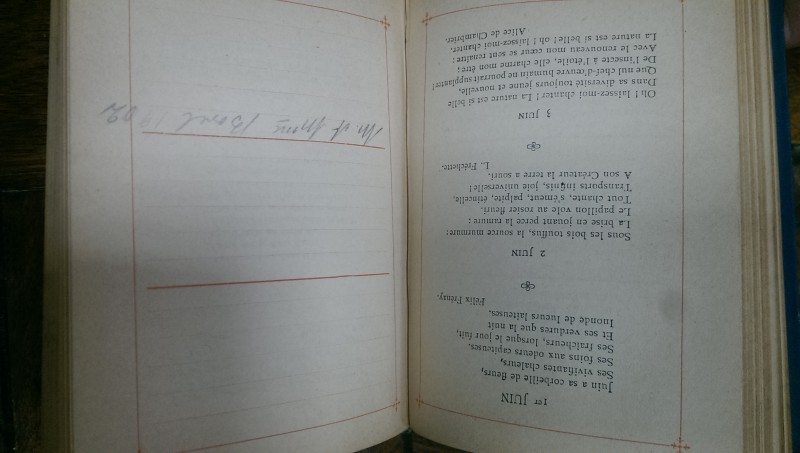 1er JUIN
Juin a sa corbeille de fleurs,
Ses vivifiantes chaleurs,
Ses foins aux odeurs capiteuses.
Ses fraîcheurs, lorsque le jour fuit,
Et ses verdures que la nuit
Inonde de lueurs laiteuses.
Félix Frénay.
2 JUIN
Sous les bois touffus, la source murmure:
La brise en jouant perce la ramure;
Le papillon vole au rosier fleuri.
Tout chante, s'émeut, palpite, étincelle,
Transports infinis, joie universelle!
A son Créateur la terre a souri.
L. Fréchette.
3 JUIN
Oh! laissez-moi chanter! La nature est si belle
Dans sa diversité toujours jeune et nouvelle,
Que nul chef-d'œuvre humain ne pourrait supplanter!
De l'insecte à l'étoile, elle charme mon être;
Avec le renouveau mon cœur se sent renaître.
La nature est si belle! oh! laissez-moi chanter.
Alice de Chambrier.